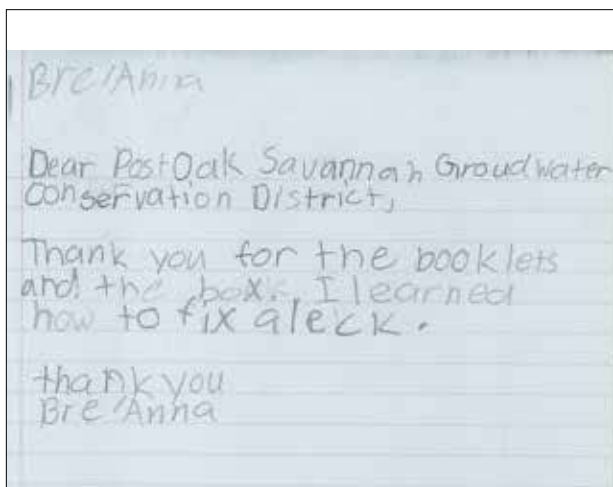 Bre'Anna
Dear Post Oak Savannah Groudwater
Conservation District,
Thank you for the booklets
and the box. I learned
how to fix a leck.
thank you
Bre'Anna